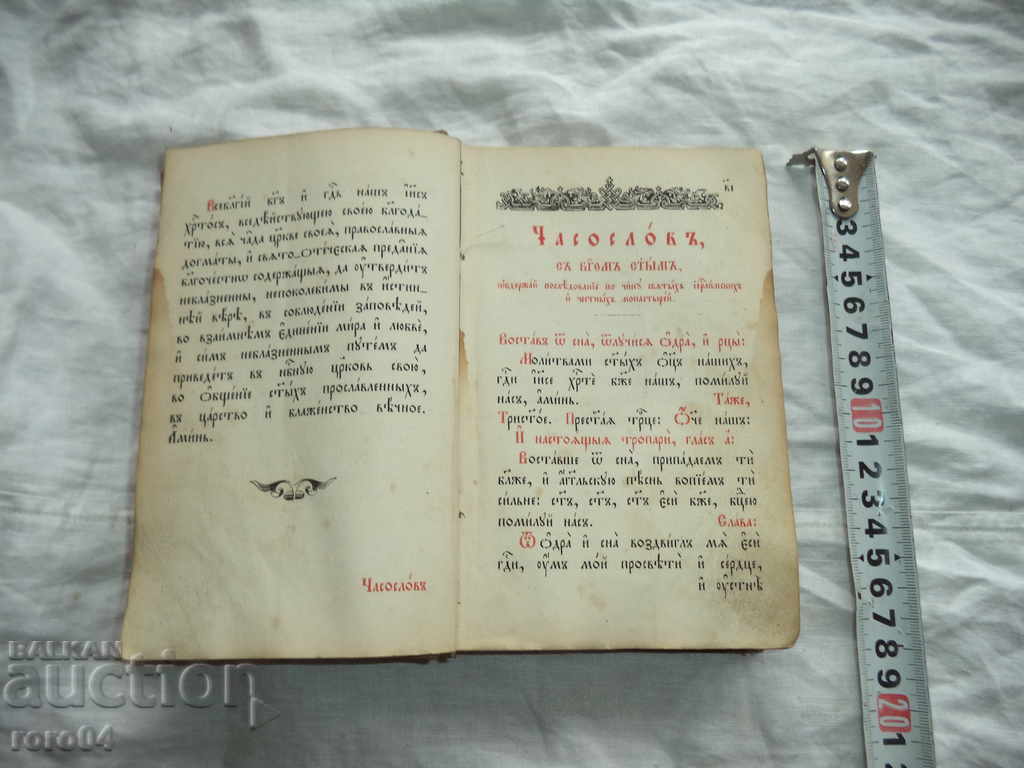 Всеблгі́й бг҃ъ и҆ гдⷭ҇ь на́шъ і҆и҃съ
хрⷭ҇то́съ, вседѣ́йствꙋющею свое́ю блгода́-
тїю, всѧ̑ ча̑да цр҃кве своеѧ̀, правосла̑вныѧ
догма́ты, и҆ свѧ́то-ѻ҆те́ческаѧ преда̑нїѧ
благоче́стнѡ содержа́щыѧ, да ᲂу҆тверди́тъ
небла́зненны, непоколи́мы въ и҆́стин-
нѣй вѣ́рѣ, въ соблюде́нїи за́повѣдей,
во взаи́мнѣмъ є҆дине́нїи ми́ра и҆ любвѐ,
и҆ си́мъ небла́зненнымъ пꙋте́мъ да
приведе́тъ въ нбⷭ҇нꙋю цр҃ковь свою̀,
во ѻ҆бще́нїе ст҃ы́хъ просла́вленныхъ,
въ ца́рство и҆ блаже́нство вѣ́чное.
А҆ми́нь.
Часосло́въ
в҃і
Часосло́въ,
съ бг҃омъ ст҃ы́мъ,
и҆́мѣѧй послѣ́дованїе по чи́нꙋ свѧты́хъ і҆ерⷭ҇ли́мскихъ
и҆ честны́хъ монастыре́й.
Воста́въ ѿ сна̀, ѿлꙋчи́сѧ ѻ҆дра̀, и҆ рцы̀:
Моли́твами ст҃ы́хъ ѻ҆тє́цъ на́шихъ,
гдⷭ҇и і҆и҃се хрⷭ҇тѐ бж҃е на́шъ, поми́лꙋй
на́съ, а҆ми́нь. Та́же,
Трист҃о́е. Прест҃а́ѧ трⷪ҇це: Ѻ҆́ч҃е на́шъ:
И҆ настоѧ́щыѧ тропари̑, гла́съ а҃:
Воста́вше ѿ сна̀, припа́даемъ тѝ
бл҃же, и҆ а҆́гг҃льскꙋю пѣ́снь вопїе́мъ тѝ
си́льне: ст҃ъ, ст҃ъ, ст҃ъ є҆сѝ бж҃е, бцⷣею
поми́лꙋй на́съ. Сла́ва:
Ѿ ѻ҆дра̀ и҆ сна̀ воздви́глъ мѧ̀ є҆сѝ
гдⷭ҇и, ᲂу҆́мъ мо́й просвѣтѝ и҆ се́рдце,
и҆ ᲂу҆стнѣ̀
3 4 5 6 7 8 9 10 1 2 3 4 5 6 7 8 9 20 1
BALKAN
auction
roro04